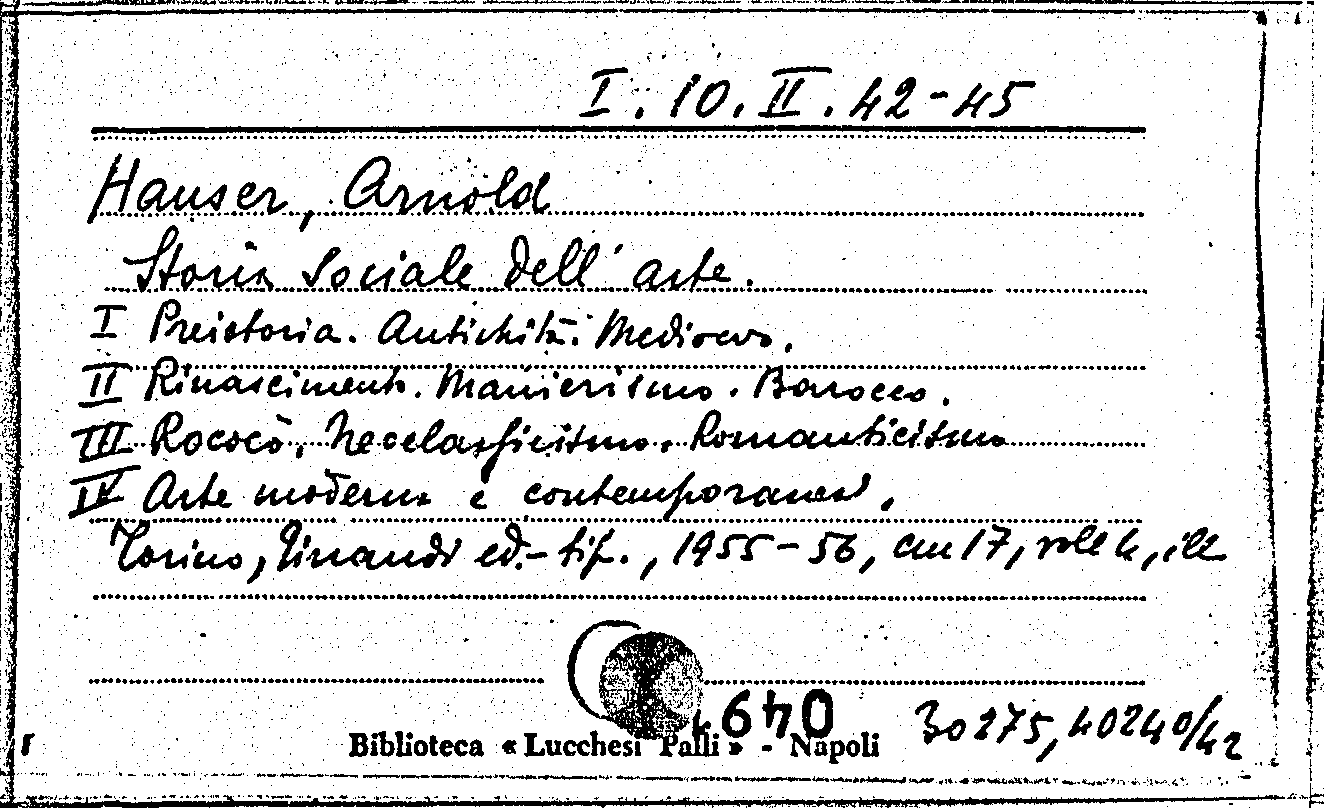 I. 10. II. 42-45
Hauser, Arnold
Storia sociale dell'arte.
I Preistoria. Antichità. Medioevo.
II Rinascimento. Manierismo. Barocco.
III Rococò. Neoclassicismo. Romanticismo
IV Arte moderna e contemporanea.
Torino, Einaudi ed.-tip., 1955-56, cm 17, voll 4, ill
Biblioteca « Lucchesi Palli » - Napoli
30275, 40240/42